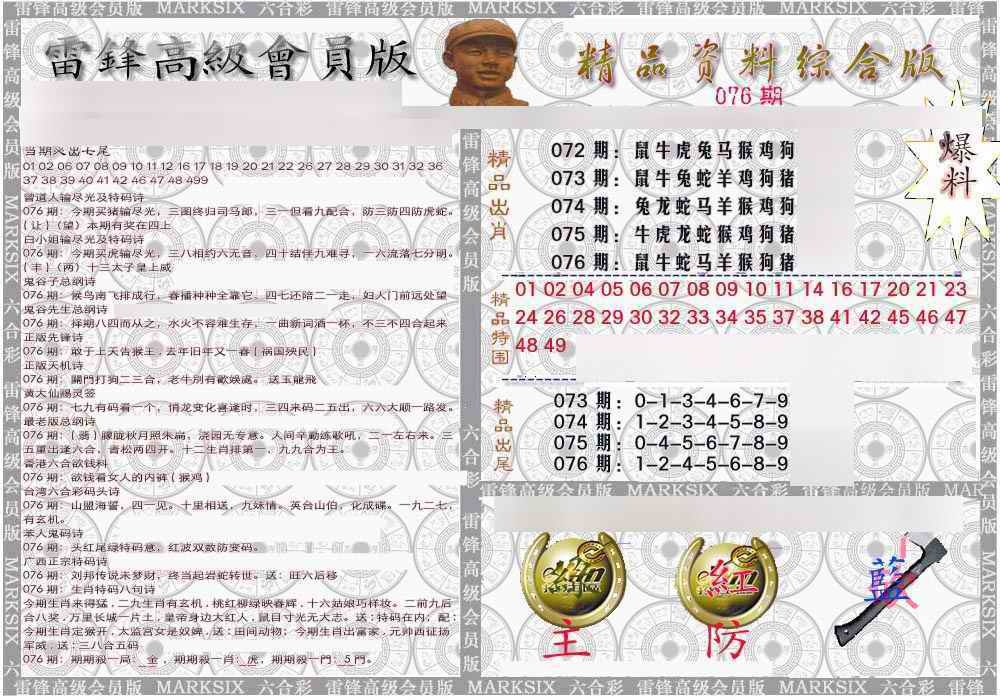 雷锋高级会员版 MARKSIX 六合彩 雷锋高级会员版 MARKSIX 六合彩 雷锋高级会员版 MARKSIX 六合彩 雷锋
雷鋒高級會員版
精品资料综合版
076 期
爆料
当期灵出七尾
01 02 06 07 08 09 10 11 12 16 17 18 19 20 21 22 26 27 28 29 30 31 32 36
37 38 39 40 41 42 46 47 48 499
曾道人输尽光及特码诗
076 期：今期买猪输尽光，三图终归司马郎，三一但看九配合，防三防四防虎蛇。
{ 让 }（望）本期有奖在四上
白小姐输尽光及特码诗
076 期：今期买虎输尽光，三八相约六无音，四十结伴九难寻，一六流落七分明。
{ 丰 }（两）十三太子皇上威
鬼谷子总纲诗
076 期：候鸟南飞排成行，春播种种全靠它，四七还陪二一走，妇人门前远处望
鬼谷先生总纲诗
076 期：择期八四而从之，水火不容难生存，一曲新词酒一杯，不三不四合起来
正版先锋诗
076 期：敢于上天告猴王，去年旧年又一春 { 祸国殃民 }
正版天机诗
076 期：關門打狗二三合，老牛别有歡娛處。 送玉龍飛
黄大仙赐灵签
076 期：七九有码看一个，悄龙变化喜逢时，三四来码二五出，六六大顺一路发。
最老版总纲诗
076 期：{ 翡 } 朦胧秋月照朱扉，浇园无专意。人间辛勤练歌吼，二一左右来。三
五重出逢六合，青松两四开。十二生肖排第一，九九合为王。
香港六合欲钱料
076 期：欲钱看女人的内裤 { 猴鸡 }
台湾六合彩码头诗
076 期：山盟海誓，四一见。十里相送，九妹情。英台山伯，化成碟。一九二七，
有玄机。
苯人鬼码诗
076 期：头红尾绿特码意，红波双数防变码。
广西正宗特码诗
076 期：刘邦传说未梦财，终当起岩蛇转世。送：旺六后移
076 期：生肖特码八句诗
今期生肖来得猛，二九生肖有玄机，桃红柳绿映春辉，十六姑娘巧样妆。二前九后
合八奖，万里长城一片土，皇帝身边大红人，鼠目寸光无大志。送：特码在内；配：
今期生肖定猴开，太监宫女是奴婢，送：田间动物；今期生肖出富家，元帅西征扬
军威，送：三八合五码
076 期：期期殺一局：金 ，期期殺一肖：虎，期期殺一門：5 門。
精品出肖
072 期：鼠牛虎兔马猴鸡狗
073 期：鼠牛兔蛇羊鸡狗猪
074 期：兔龙蛇马羊猴鸡狗
075 期：牛虎龙蛇猴鸡狗猪
076 期：鼠牛蛇马羊猴狗猪
精品特围
01 02 04 05 06 07 08 09 10 11 14 16 17 20 21 23
24 26 28 29 30 32 33 34 35 37 38 41 42 45 46 47
48 49
精品出尾
073 期：0-1-3-4-6-7-9
074 期：1-2-3-4-5-8-9
075 期：0-4-5-6-7-8-9
076 期：1-2-4-5-6-8-9
雷锋高级会员版 MARKSIX 六合彩 雷锋高级会员版 MARKSIX
红
藍
主
防
雷锋高级会员版 MARKSIX 六合彩 雷锋高级会员版 MARKSIX 六合彩 雷锋高级会员版 MARKSIX 六合彩 雷锋